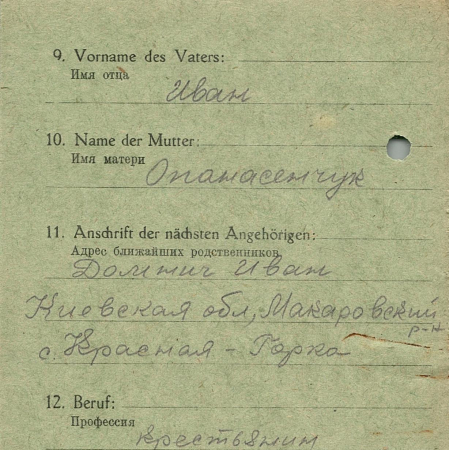 9. Vorname des Vaters:
Имя отца
Иван
10. Name der Mutter:
Имя матери
Опанасенчук
11. Anschrift der nächsten Angehörigen:
Адрес ближайших родственников
Иван
Киевская обл, Макаровский
р-н
с. Красная - Горка
12. Beruf:
Профессия
Крестьянин